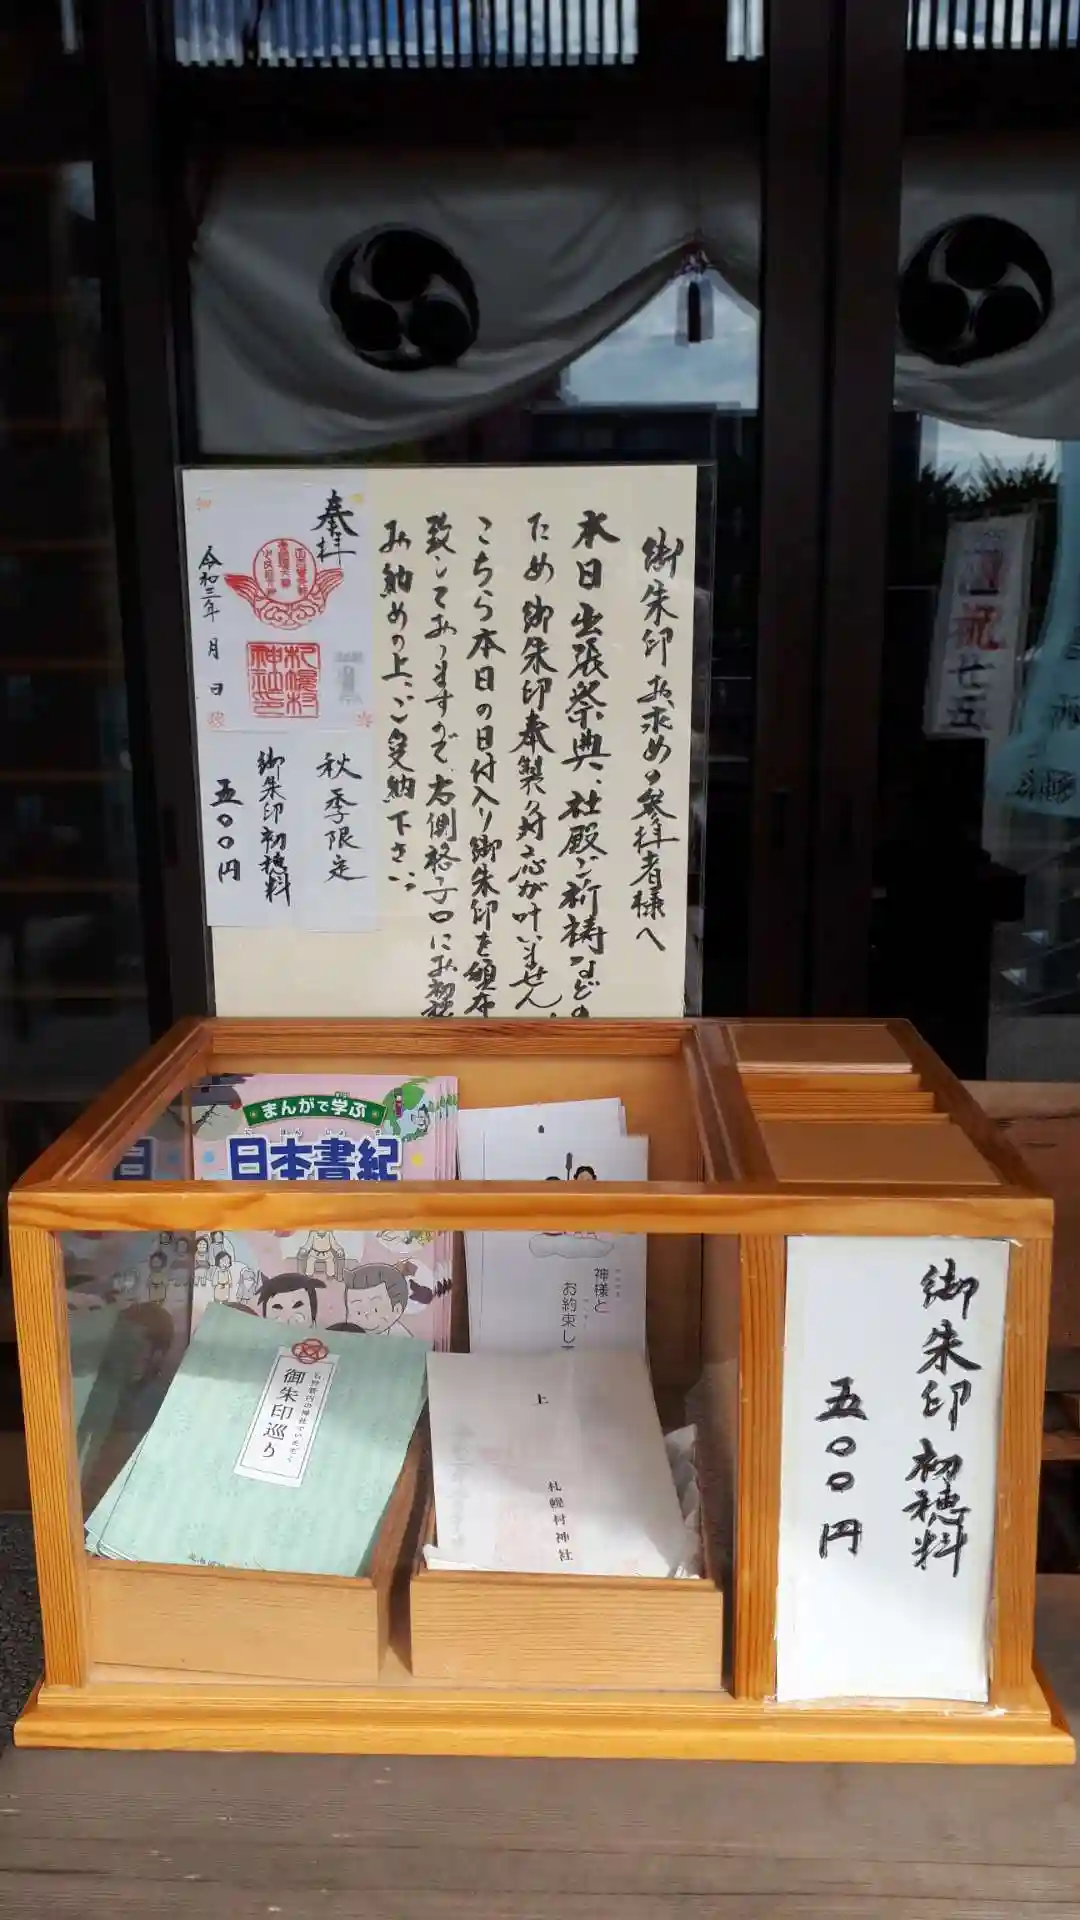 御朱印お求めの参拝者様へ
本日出張祭典、社殿ご祈祷などの
ため御朱印奉製の対応が叶いません。
こちら本日の日付入り御朱印を頒布
致しておりますので、右側格子口にお初穂
お納めの上、ご受納下さい。
奉拝
令和三年 月 日
札幌村神社
秋季限定
御朱印初穂料
五〇〇円
まんがで学ぶ
日本書紀
神様と
お約束して
御朱印巡り
上
札幌村神社
御朱印初穂料
五〇〇円